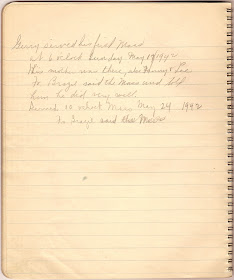 Gerry served his first Mass
at 6 o'clock Sunday May 17 1942
His mother was there, also Fanny & Lee
Fr. said the Mass and told
him he did very well.
Served 10 o'clock Mass May 24 1942
Fr. said the Mass